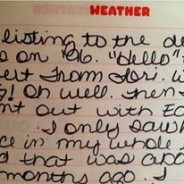 WEATHER
listing to the de
on "96. "Hello"
ert from Tori. w
! Oh well. Then
nt out with Ea
. I only saw
ce in my whole
d that was abo
months ago. I